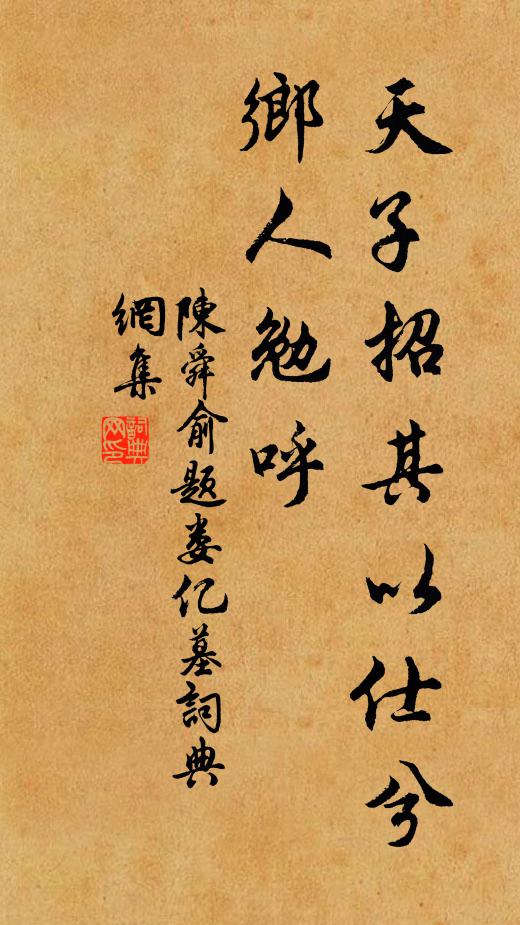 天子招其以仕兮
鄉人勉呼
陳舜俞題娄亿墓詞典
網集
詞典
网印